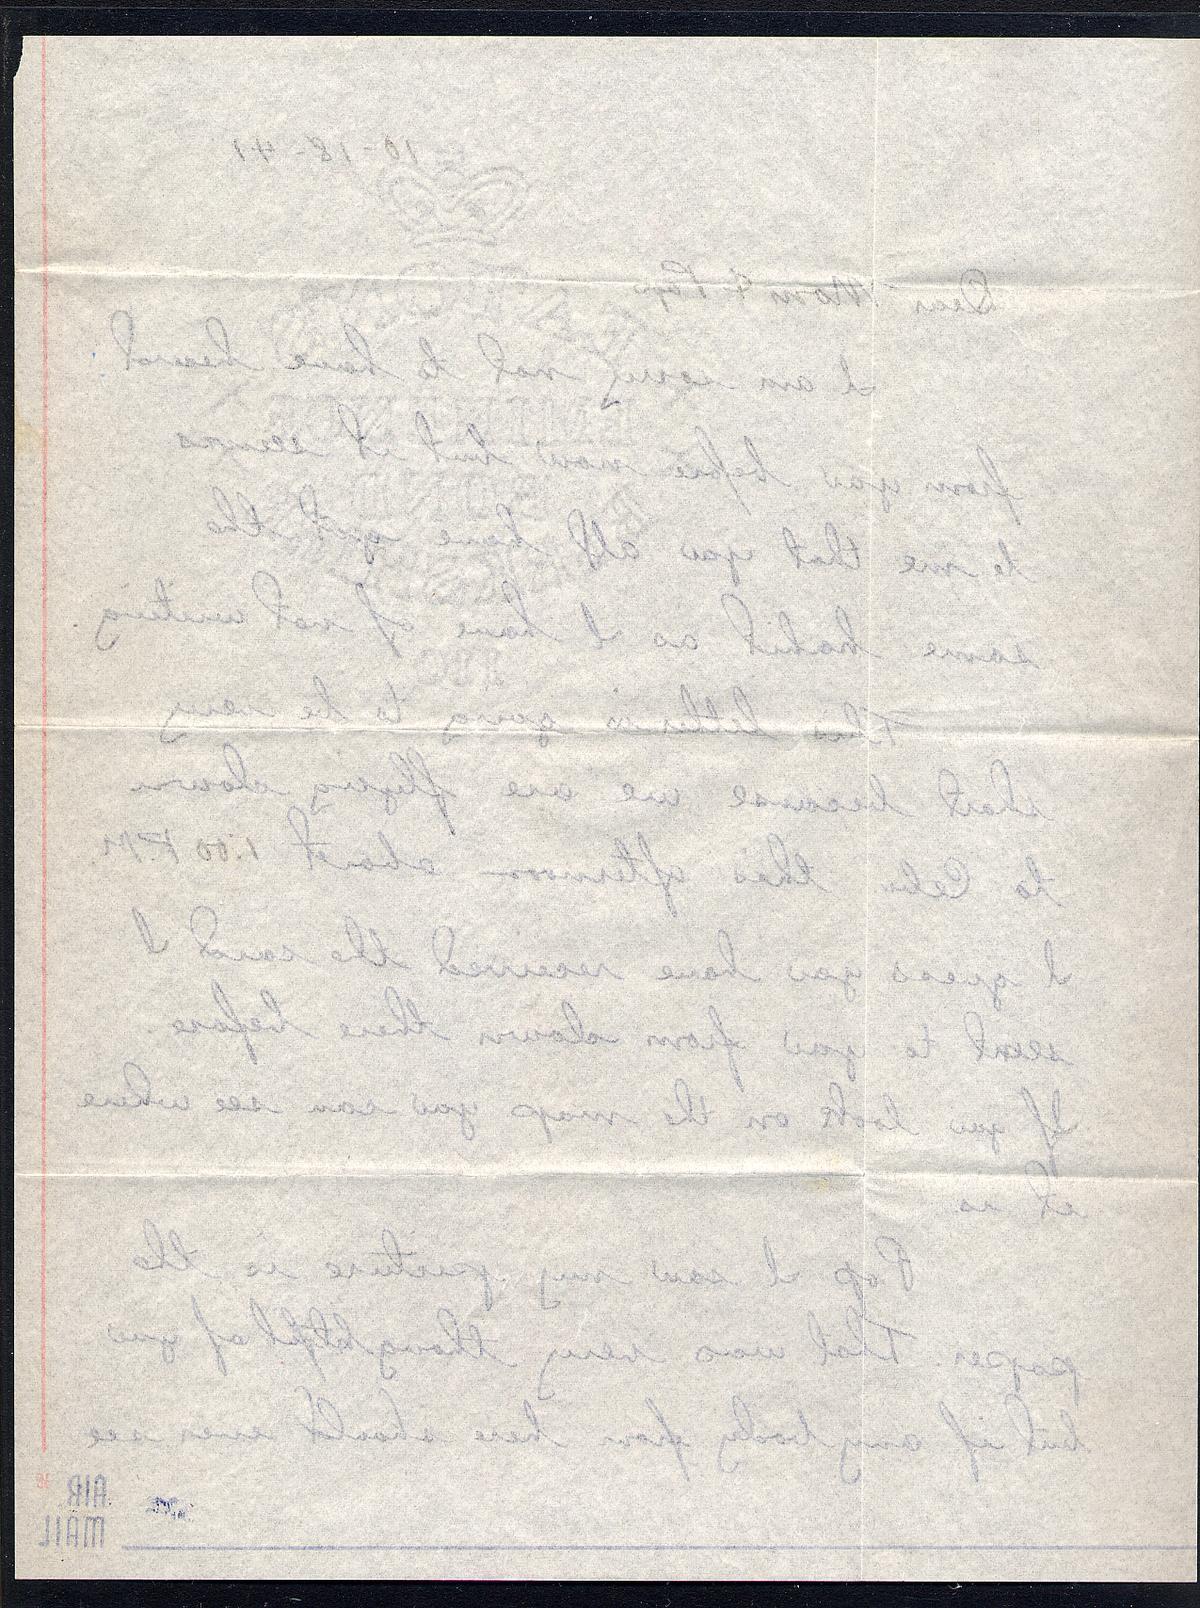 10-18-41
Dear Mom & Pop
I am sorry not to have heard
from you before now but it seems
to me that you all have got the
same habit as I have of not writing
This letter is going to be very
short because we are flying down
to Cebu this afternoon about 1:00 P.M.
I guess you have received the card I
sent to you from down there before.
If you look on the map you can see where
it is.
Pop I saw my picture in the
paper. That was very thoughtful of you
but if anybody from here should ever see
AIR
MAIL